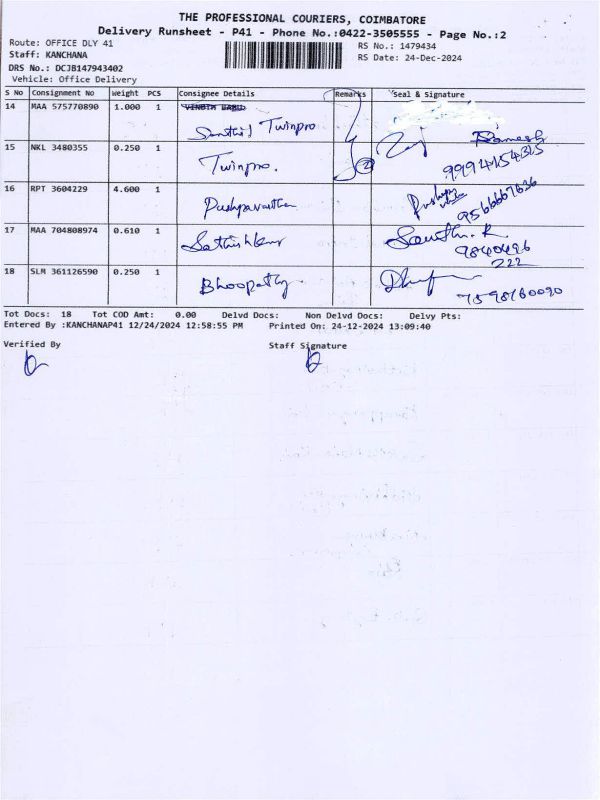 THE PROFESSIONAL COURIERS, COIMBATORE
Delivery Runsheet - P41 - Phone No.:0422-3505555 - Page No.:2
Route: OFFICE DLY 41
RS No.: 1479434
Staff: KANCHANA
RS Date: 24-Dec-2024
DRS No.: DCJB147943402
Vehicle: Office Delivery
S No Consignment No Weight PCS Consignee Details Remarks Seal & Signature
14 MAA 575770890 1.000 1 VINOTH BABU
Senthil Twinpro
Ramesh
15 NKL 3480355 0.250 1 Twinpro. 2 9994154315
16 RPT 3604229 4.600 1 Pushpavartha
9566667636
17 MAA 704808974 0.610 1 Sathishkumr
Santh. R
9840496
222
18 SLM 361126590 0.250 1 Bhoopathy
7598160090
Tot Docs: 18 Tot COD Amt: 0.00 Delvd Docs: Non Delvd Docs: Delvy Pts:
Entered By :KANCHANAP41 12/24/2024 12:58:55 PM Printed On: 24-12-2024 13:09:40
Verified By Staff Signature